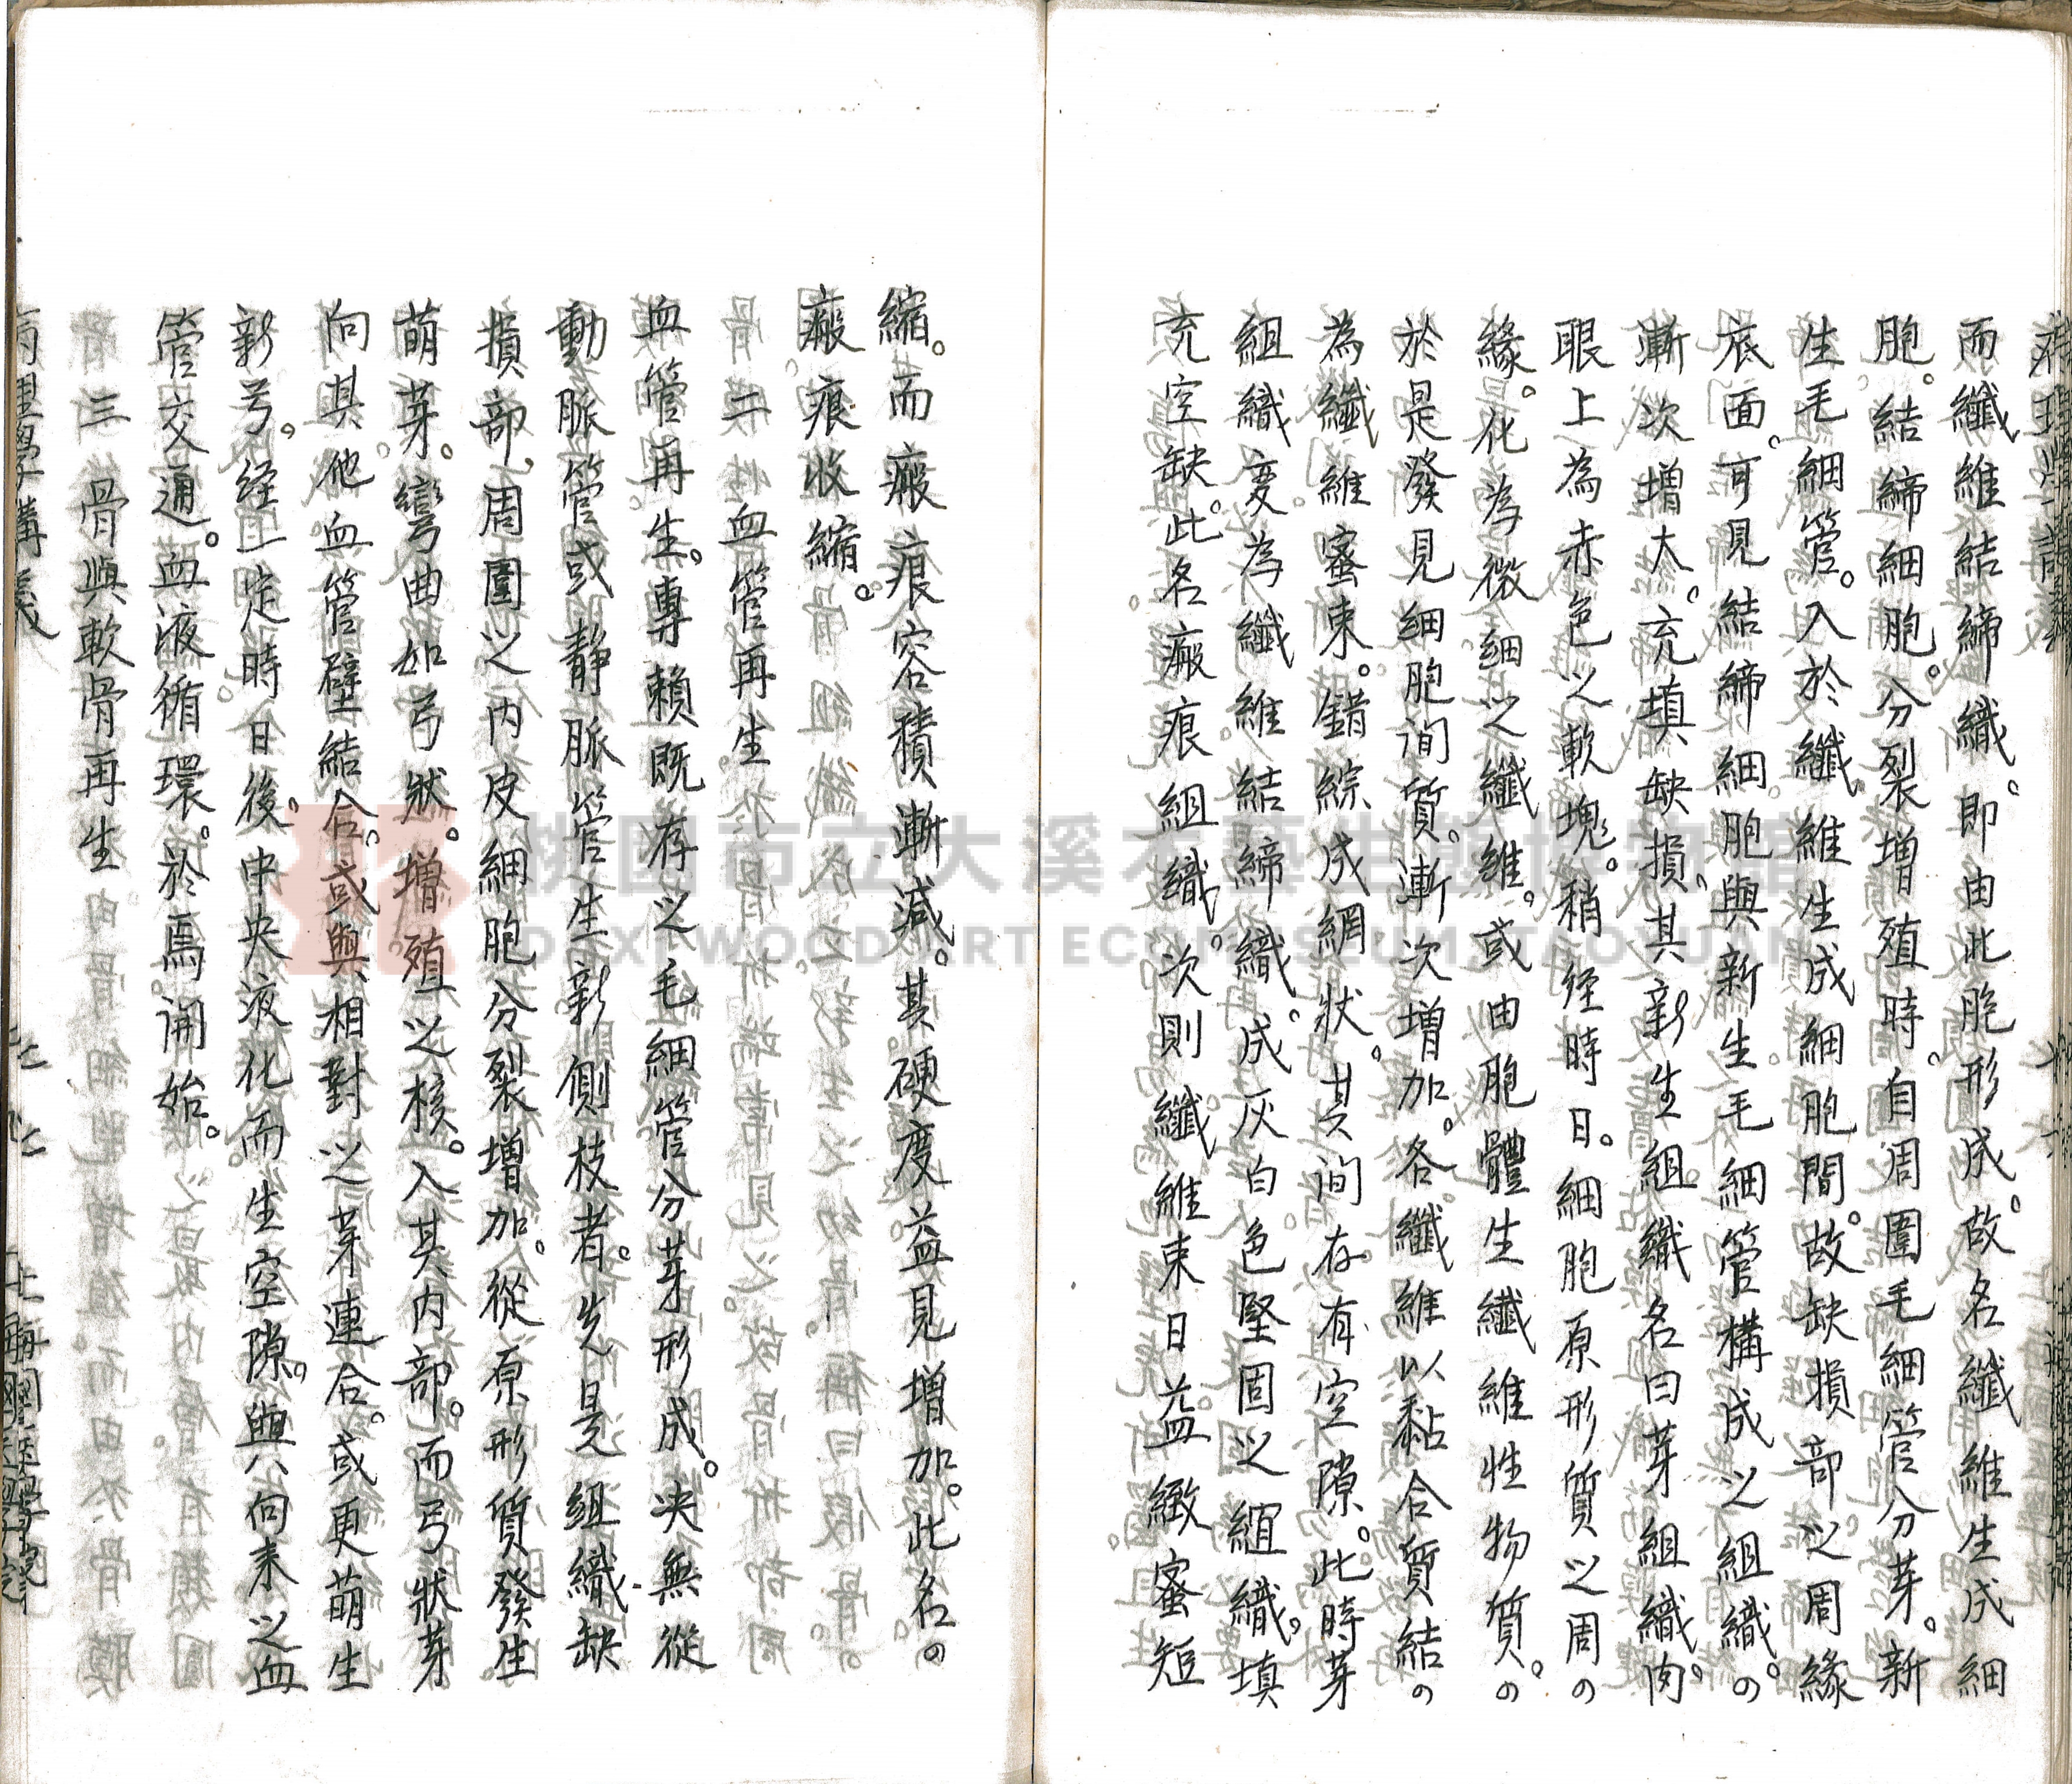 病理學講義
而纖維結締織。即由此胞形成。故名纖維生成細
胞。結締細胞。分裂增殖時。自周圍毛細管分芽。新
生毛細管。入於纖維生成細胞間。故缺損部之周緣
底面。可見結締細胞與新生毛細管構成之組織。
漸次增大。充填缺損。其新生組織名曰芽組織肉
眼上為赤色之軟塊。稍経時日。細胞原形質之周
緣。化為微細之纖維。或由胞體生纖維性物質。
於是發見細胞间質。漸次增加。各纖維以黏合質結
為纖維蜜束。錯綜成網狀。其间存有空隙。此時芽
組織变為纖維結締織。成灰白色堅固之組織。填
充空缺。此名瘢痕組織。次則纖維束日益緻蜜短
縮。而瘢痕容積漸減。其硬度益見增加。此名
瘢痕收縮。
二 血管再生
血管再生。專賴既存之毛細管分芽形成。决無從
動脈管或靜脈管生新側枝者。先是組織缺
損部周圍之内皮細胞分裂增加。從原形質發生
萌芽。彎曲如弓狀。增殖之核。入其内部。而弓狀芽
向其他血管壁結合。或與相對之芽連合。或更萌生
新弓。経一定時日後。中央液化而生空隙。與向来之血
管交通。血液循環。於焉開始。
三 骨與軟骨再生
病理學講義
上海國醫學院
桃園市立大溪木藝生態博物館
DAXI WOOD ART ECOMUSEUM, TAOYUAN